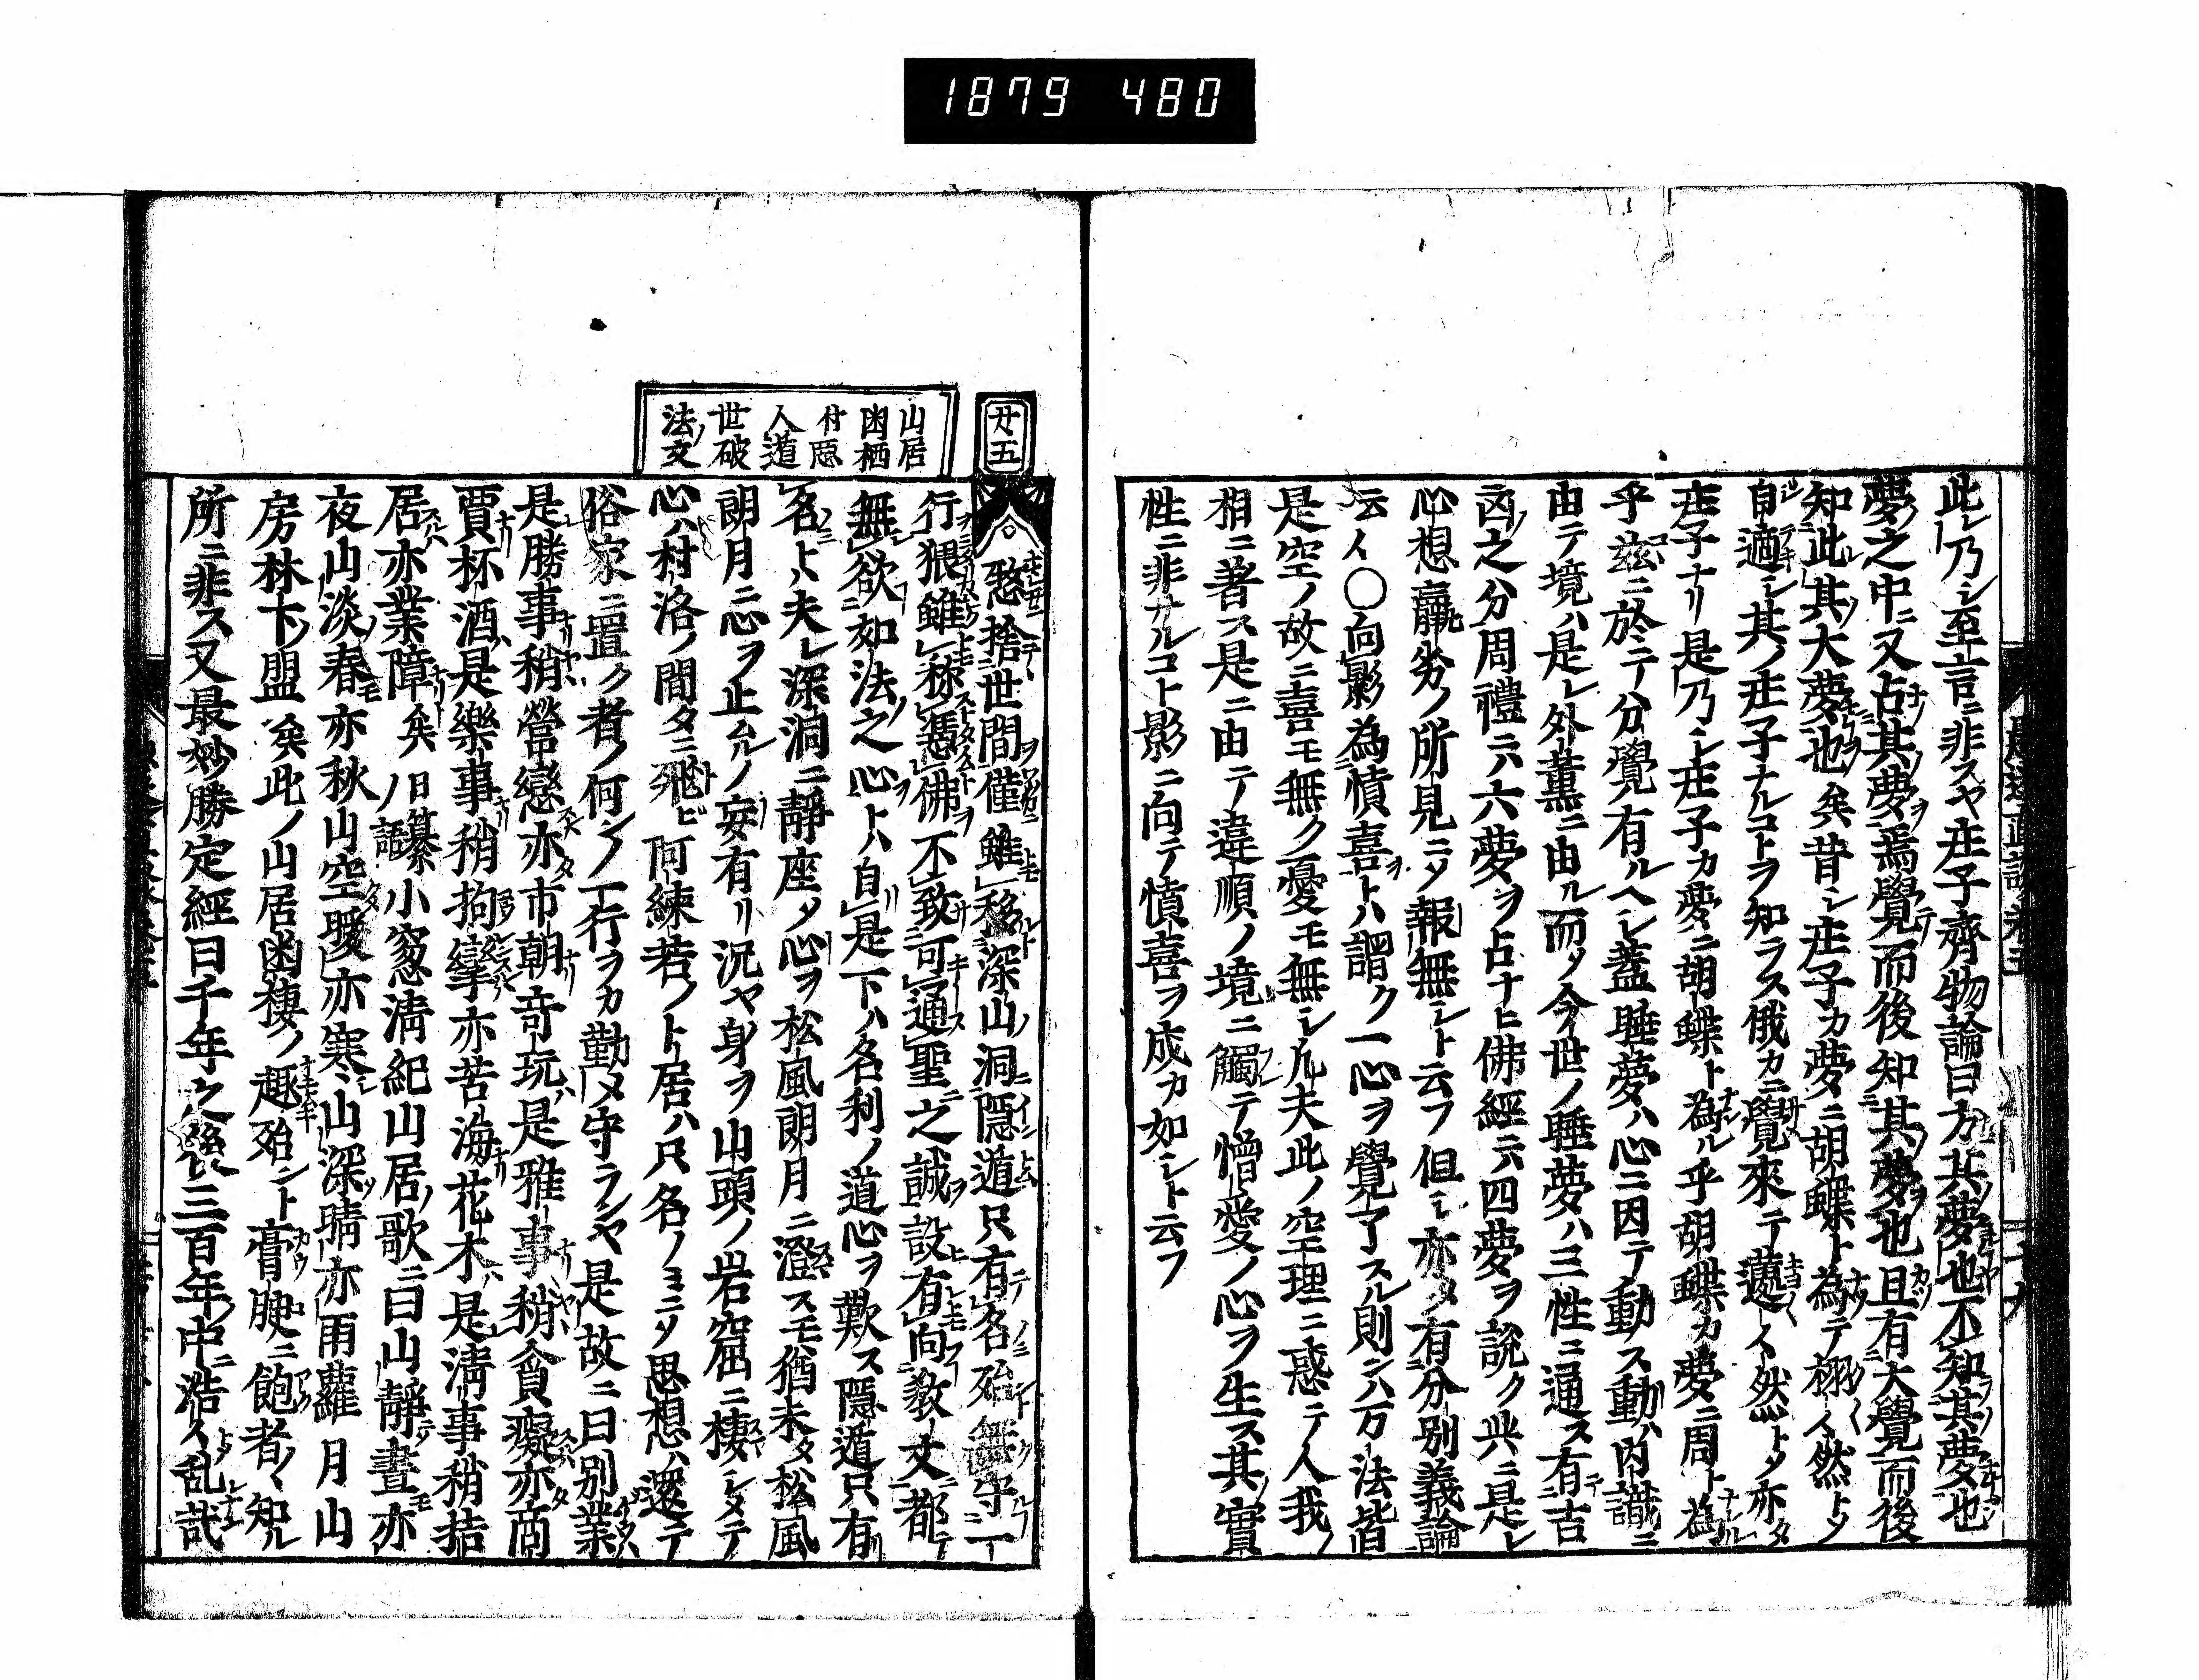 1879 480
此レ乃シ至言ニ非スヤ庄子齊物論曰方其夢也不知其夢也
夢之中ニ又占其夢焉覺而後知其夢也且有大覺而後
知此其大夢也矣昔シ庄子カ夢ニ胡蝶ト為テ栩々然トノ
自適シ其ノ庄子ナルコトヲ知ラス俄カニ覺來テ蘧々然トノ亦タ
庄子ナリ是乃シ庄子カ夢ニ胡蝶ト為ル乎胡蝶カ夢ニ周ト為ル
乎玆ニ於ニテ分覺有ルヘシ蓋睡夢ハ心ニ因テ動ス動ハ内識ニ
由テ境ハ是レ外薫ニ由ル而メ今世ノ睡夢ハ三性ニ通ス有吉
凶之分周禮ニハ六夢ヲ占ナヒ佛經ニハ四夢ヲ説ク此ニ是レ
心想羸劣ノ所見ニメ報無シト云フ但シ亦タ有分別義論
云々〇向影為憤喜トハ謂ク一心ヲ覺了スル則ンハ万法皆
是空ノ故ニ喜モ無ク憂モ無シ凡夫此ノ空理ニ惑テ人我ノ
相ニ著ス是ニ由テ違順ノ境ニ觸テ憎愛ノ心ヲ生ス其實
性ニ非サルコト影ニ向テ憤喜ヲ成カ如シト云フ
廿五
山居
凾栖
付悪
人道
世破
法文
愁捨世間僅雖移深山洞隠道只有名殆無守一
行猥雖稱憑佛不致可通聖之誠設有向教文都テ
無欲如法之心トハ自是下ハ名利ノ道心ヲ歎ス隠遁只有
名トハ夫レ深洞ニ靜座メ心ヲ松風朗月ニ澄スモ猶未タ松風
朗月ニ心ヲ止ムルノ妄有リ況ヤ身ヲ山頭ノ岩窟ニ棲シメテ
心ハ村洛ノ間タニ飛ビ阿練若ノト居ハ只名ノミニメ思想ハ還テ
俗家ニ置ク者ノ何ンノ一行ヲカ勤メ守ラシヤ是故ニ曰別業ハ
是勝事稍營戀亦市朝竒玩ハ是雅事稍貪癡亦商
賈杯酒ハ是樂事稍拘攣亦苦海花木ハ是清事稍桔
居亦業障矣日纂ノ語小窓清紀山居ノ歌ニ曰山靜晝亦
夜山淡春亦秋山空暖亦寒山深晴亦雨蘿月山
房林下ノ盟矣此ノ山居凾棲ノ趣殆ント膏腴ニ飽者ノ知ル
所ニ非ス又最妙勝定經曰千年之後三百年中浩々乱哉